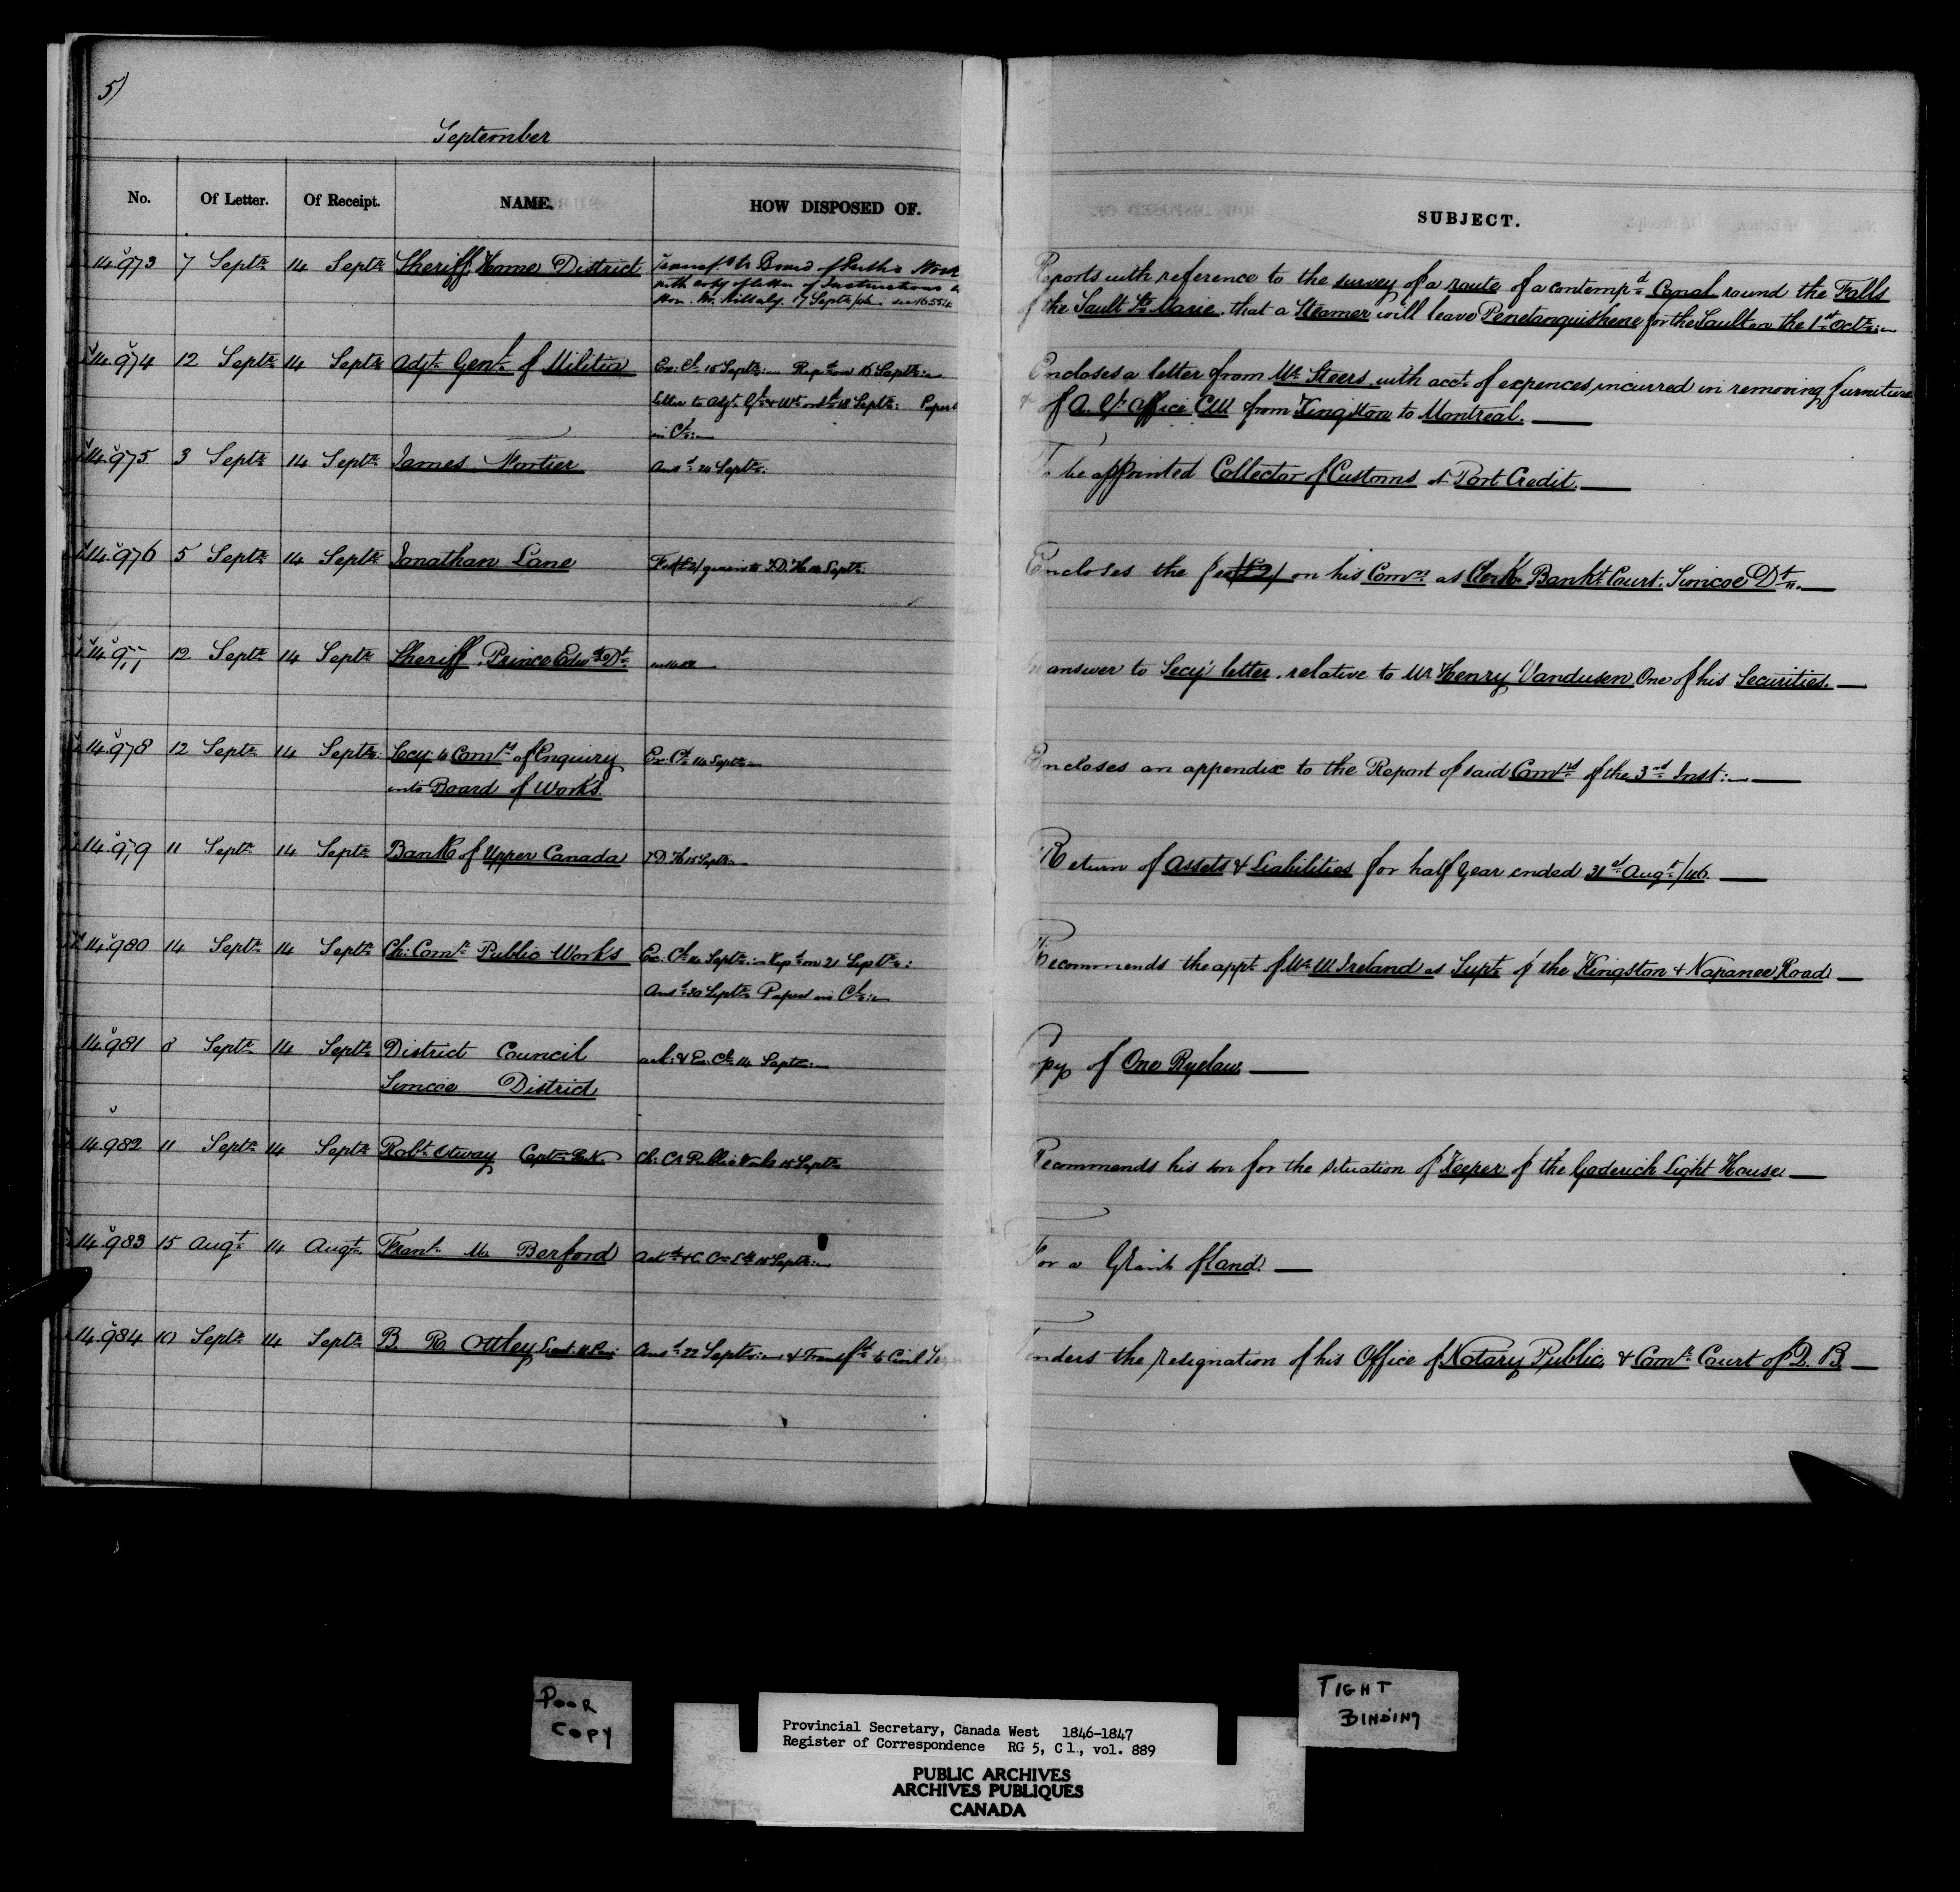 5)
September
No. Of Letter. Of Receipt. NAME. HOW DISPOSED OF. SUBJECT.
14.973 7 Septr 14 Septr Sheriff Home District Transfd to Board of Public Work Reports with reference to the survey of a route of a contempd Canal round the Falls
with copy of letter of Instructions
Hon. Mr. Killaly. 17 Septr of the Sault Ste Marie, that a Steamer will leave Penetanguishene for the Sault on the 1st Octr
14.974 12 Septr 14 Septr Adjt Genl of Militia Ex: Cl 15 Septr Repd on 15 Septr Encloses a letter from Mr Steers with acct of expences, incurred in removing furniture
letter to Adjt Gl & Wt 18 Septr: Papers of A. Gl Office C.W. from Kingston to Montreal.
in Cl
14.975 3 Septr 14 Septr James Fortier Ansd 24 Septr. To be appointed Collector of Customs at Port Credit.
14.976 5 Septr 14 Septr Jonathan Lane Fee (£2) given to J.D. Septr. Encloses the fee (£2) on his Comn as Clerk Bankt Court. Simcoe Dt.
14.977 12 Septr 14 Septr Sheriff, Prince Edwd Dt In answer to Secy's letter, relative to Mr Henry Vandusen One of his Securities.
14.978 12 Septr 14 Septr Secy to Comrs of Enquiry Ex. Cl 14 Septr Encloses an appendix to the Report of said Comrs of the 3rd Inst:
into Board of Works
14.979 11 Septr 14 Septr Bank of Upper Canada 15 Septr Return of Assets & Liabilities for half Year ended 31st Augt/46.
14.980 14 Septr 14 Septr Ch: Comr Public Works Ex. Cl 14 Septr Repd on 21 Septr: Recommends the appt of Mr W Ireland as Supt of the Kingston & Napanee Road
Ansd 30 Septr Papers in Cl
14.981 8 Septr 14 Septr District Council ack: & Ex. Cl 14 Septr Copy of One Byelaw
Simcoe District
14.982 11 Septr 14 Septr Robt Otway Captn R.N. Ch: Cr Public Works 15 Septr Recommends his son for the situation of Keeper of the Goderich Light House
14.983 15 Augt 14 Augt Frans M Berford Ackd & 15 Septr For a Grant of land.
14.984 10 Septr 14 Septr B. R. Ottley Ansd 22 Septr & Transfd to Civil Tenders the resignation of his Office of Notary Public, & Comr Court of Q. B
POOR
COPY
TIGHT
BINDING
Provincial Secretary, Canada West 1846-1847
Register of Correspondence RG 5, C 1., vol. 889
PUBLIC ARCHIVES
ARCHIVES PUBLIQUES
CANADA